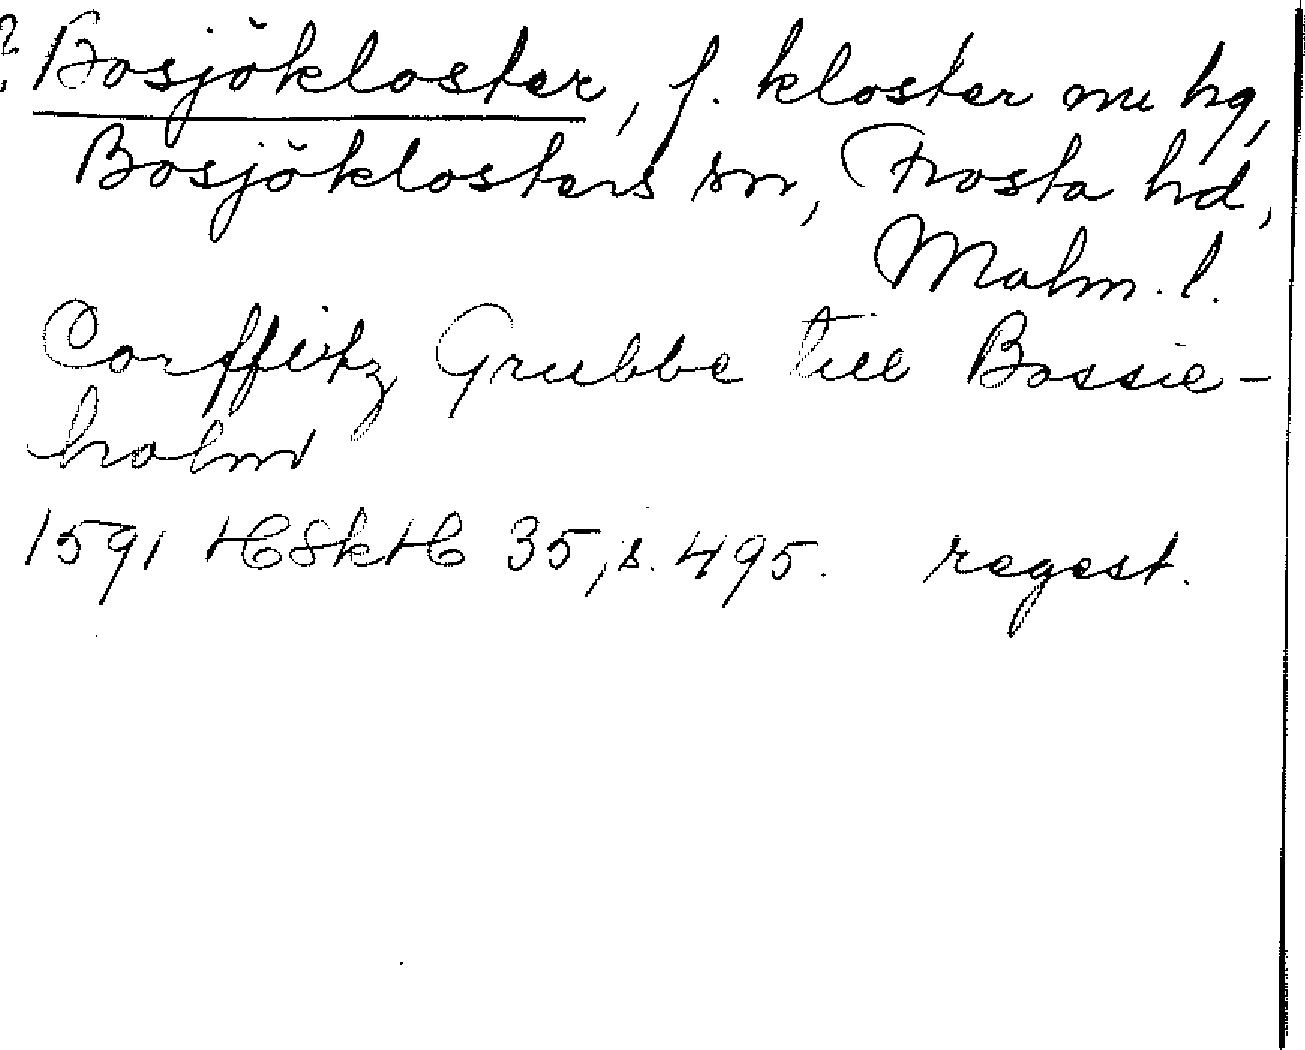 ? Bosjökloster, f. kloster nu hg,
Bosjöklosters sn, Frosta hd,
Malm. l.
Corffitz Grubbe till Bossie-
holm
1591 HSkH 35, s. 495. regest.